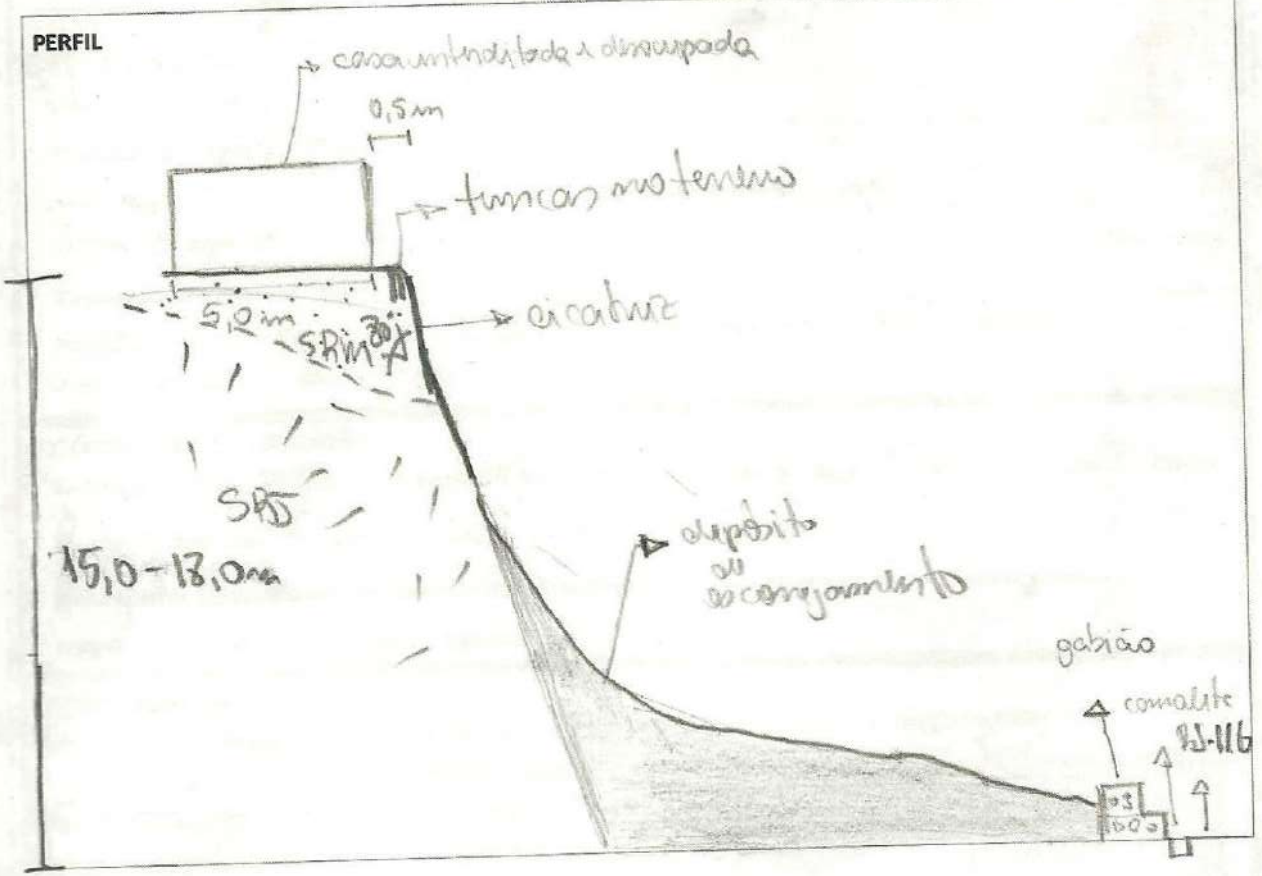 PERFIL
casa interditada e desocupada
0,5m
trincas no terreno
cicatriz
5,0m
SRM
SRJ
15,0-18,0m
depósito
de
escorregamento
gabião
canalete
RJ-116